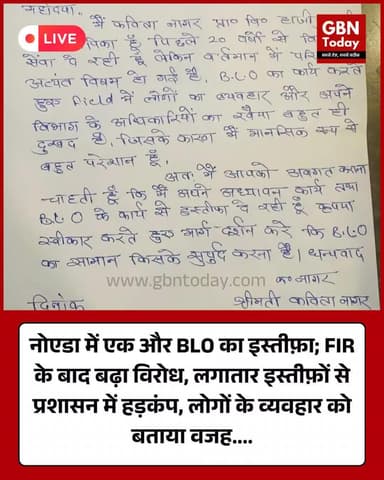 GBN
Today
LIVE
महोदया,
मैं कविता नागर प्रा० वि०
हूँ पिछले 20 वर्षों से
सेवा दे रही हूँ लेकिन वर्तमान में
अत्यंत विषम हो गई हैं, B.L.O का कार्य करते
हुए Field में लोगों का व्यवहार और अपने
विभाग के अधिकारियों का रवैया बहुत ही
दुखद है, जिसके कारण मैं मानसिक रूप से
बहुत परेशान हूँ।
अतः मैं आपको अवगत कराना
चाहती हूँ कि मैं अपने अध्यापन कार्य तथा
B.L.O के कार्य से इस्तीफा दे रही हूँ कृपया
स्वीकार करते हुए मार्ग दर्शन करें कि B.L.O
का सामान किसके सुपुर्द करना है। धन्यवाद
www.gbntoday.com
क० नागर
दिनांक
श्रीमती कविता नागर
नोएडा में एक और BLO का इस्तीफ़ा; FIR
के बाद बढ़ा विरोध, लगातार इस्तीफ़ों से
प्रशासन में हड़कंप, लोगों के व्यवहार को
बताया वजह....